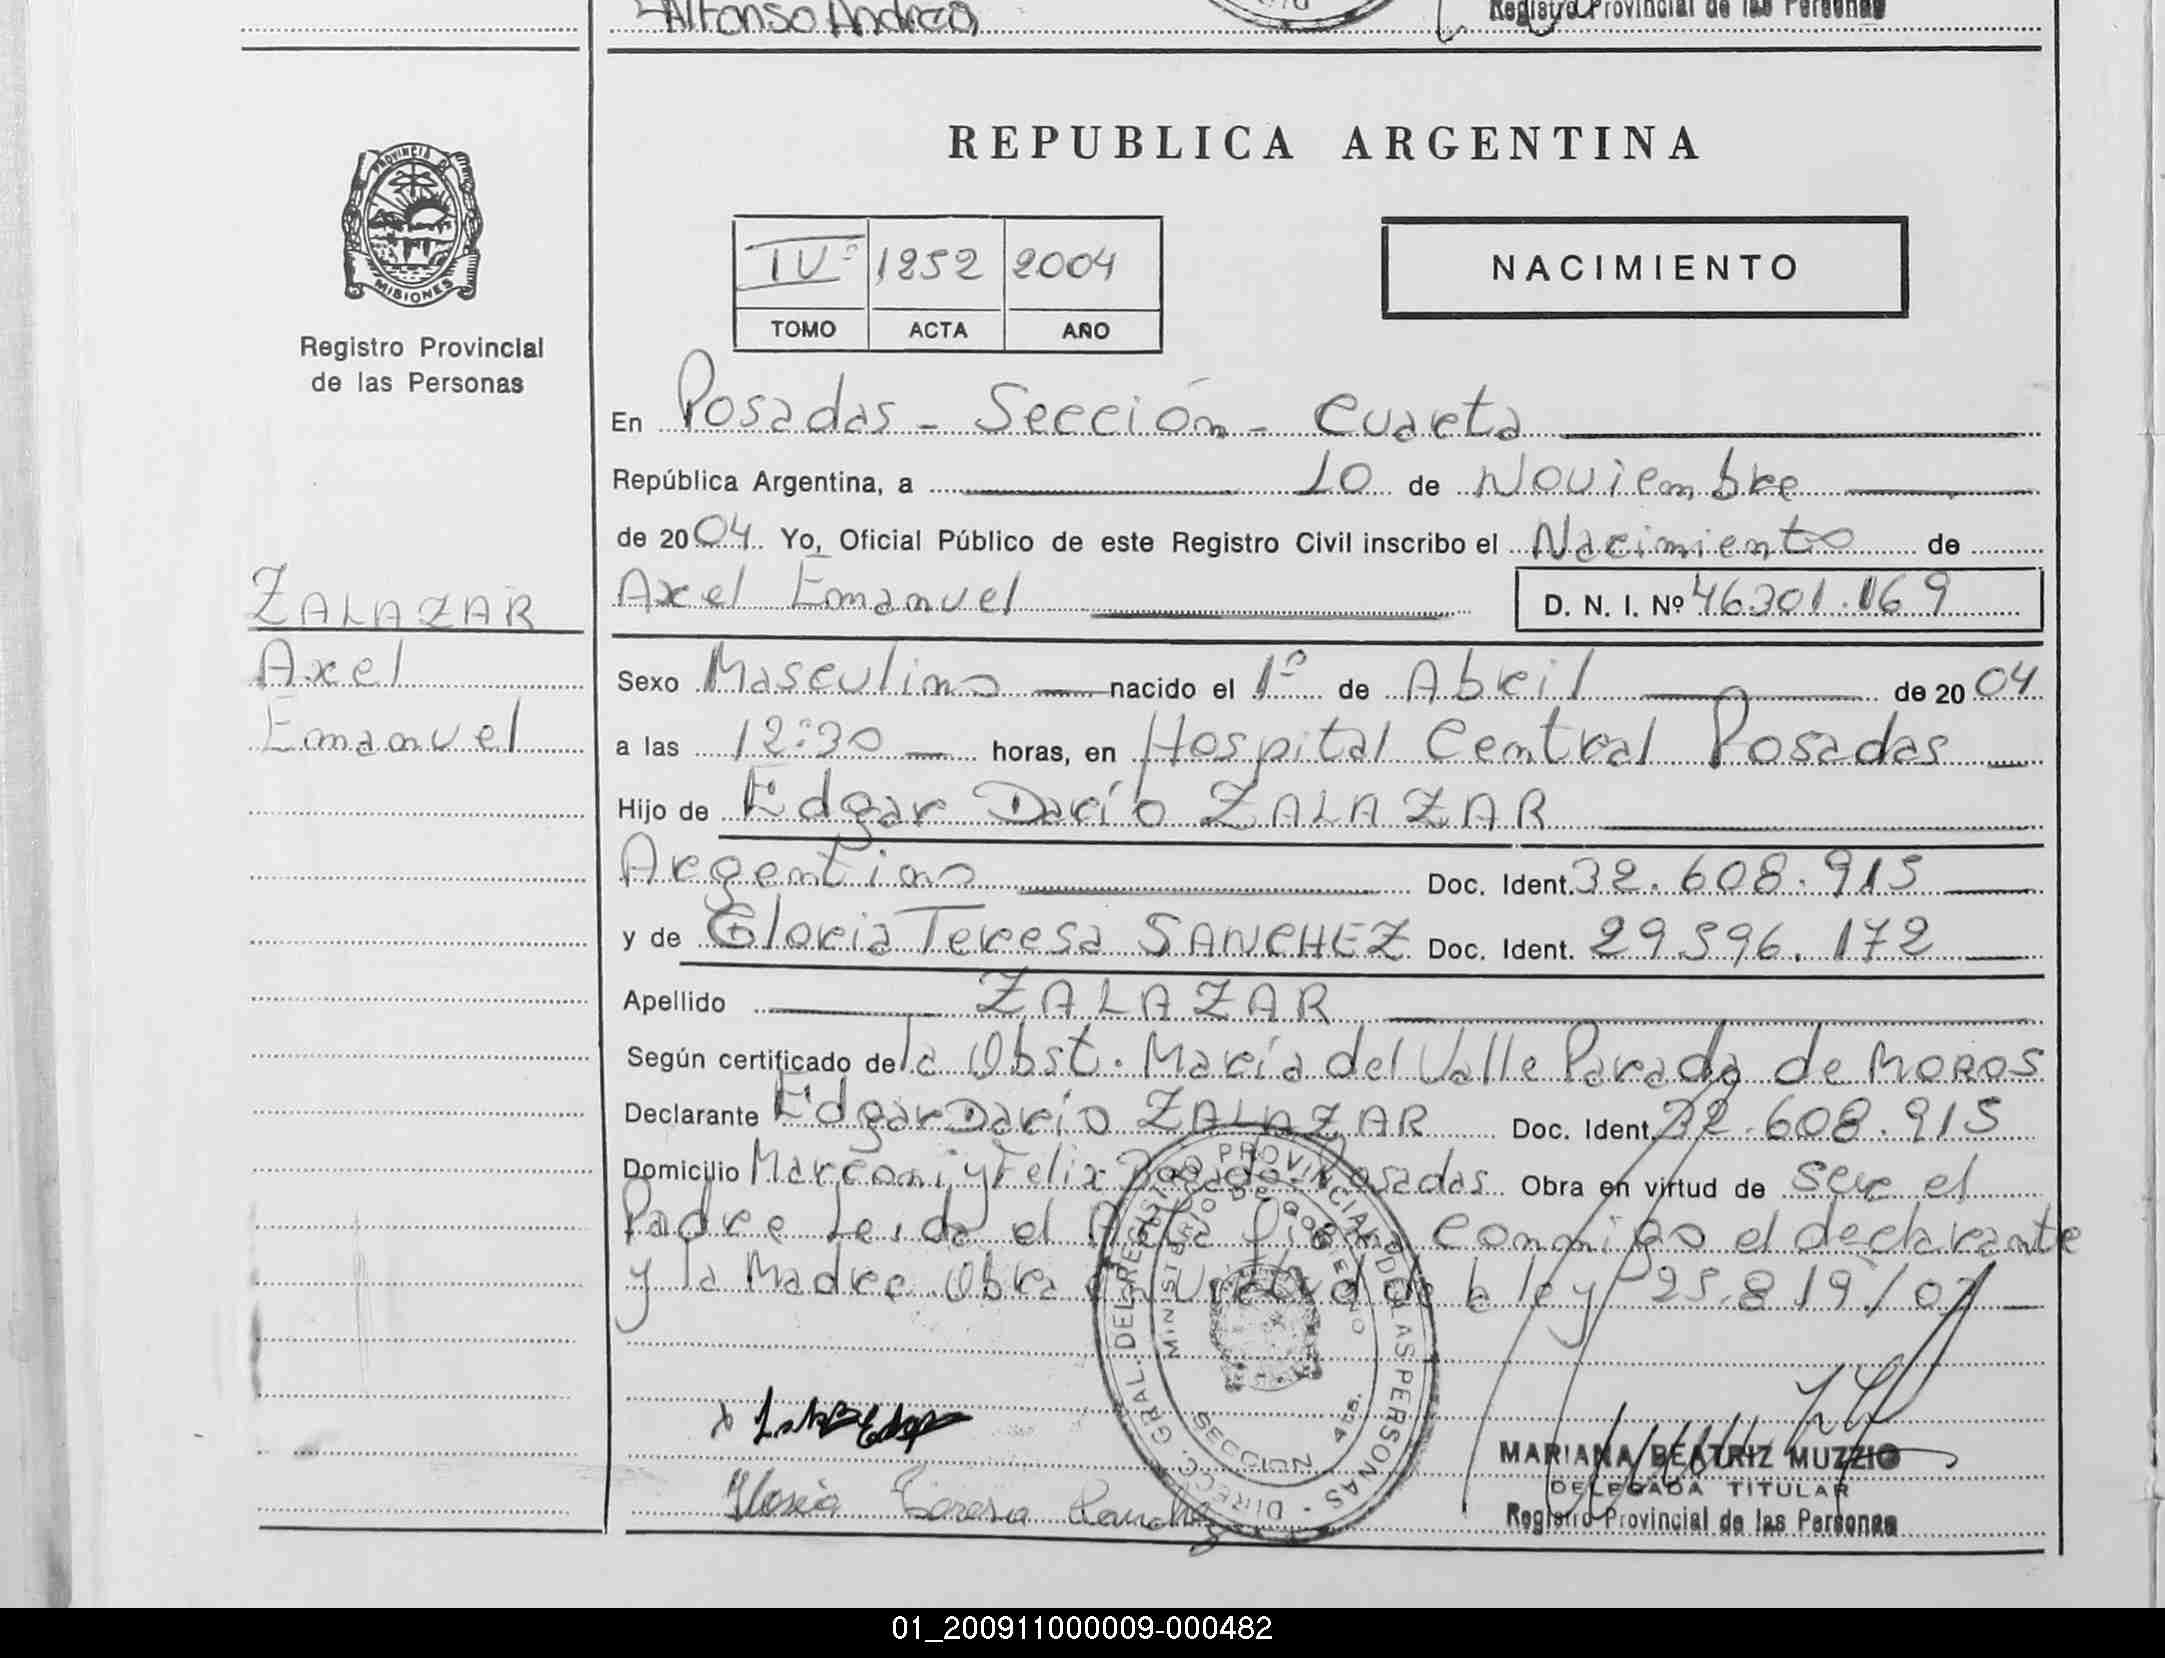 Alfonso Andrea
Registro Provincial de las Personas
PROVINCIA DE
MISIONES
Registro Provincial
de las Personas
REPUBLICA ARGENTINA
IVº 1252 2004
TOMO ACTA AÑO
NACIMIENTO
En Posadas - Sección - Cuarta
República Argentina, a 10 de Noviembre
de 2004 Yo, Oficial Público de este Registro Civil inscribo el Nacimiento de
Axel Emanuel D. N. I. Nº 46.301.169
ZALAZAR
Axel
Emanuel
Sexo Masculino nacido el 1º de Abril de 2004
a las 12:30 horas, en Hospital Central Posadas
Hijo de Edgar Darío ZALAZAR
Argentino Doc. Ident. 32.608.915
y de Gloria Teresa SANCHEZ Doc. Ident. 29.596.172
Apellido ZALAZAR
Según certificado de la Obst. María del Valle Parada de MOROS
Declarante Edgar Darío ZALAZAR Doc. Ident. 32.608.915
Domicilio Marconi y Felix Bogado Posadas Obra en virtud de ser el
Padre Leída el Acta Firma Conmigo el declarante
y la Madre. Obra en Virtud de la ley 25.819/03
DIRECC. GRAL. DEL REGISTRO PROVINCIAL DE LAS PERSONAS
MINISTERIO DE GOBIERNO
SECCION 4ta.
Gloria Teresa Sanchez
MARIANA BEATRIZ MUZZIO
DELEGADA TITULAR
Registro Provincial de las Personas
01_200911000009-000482